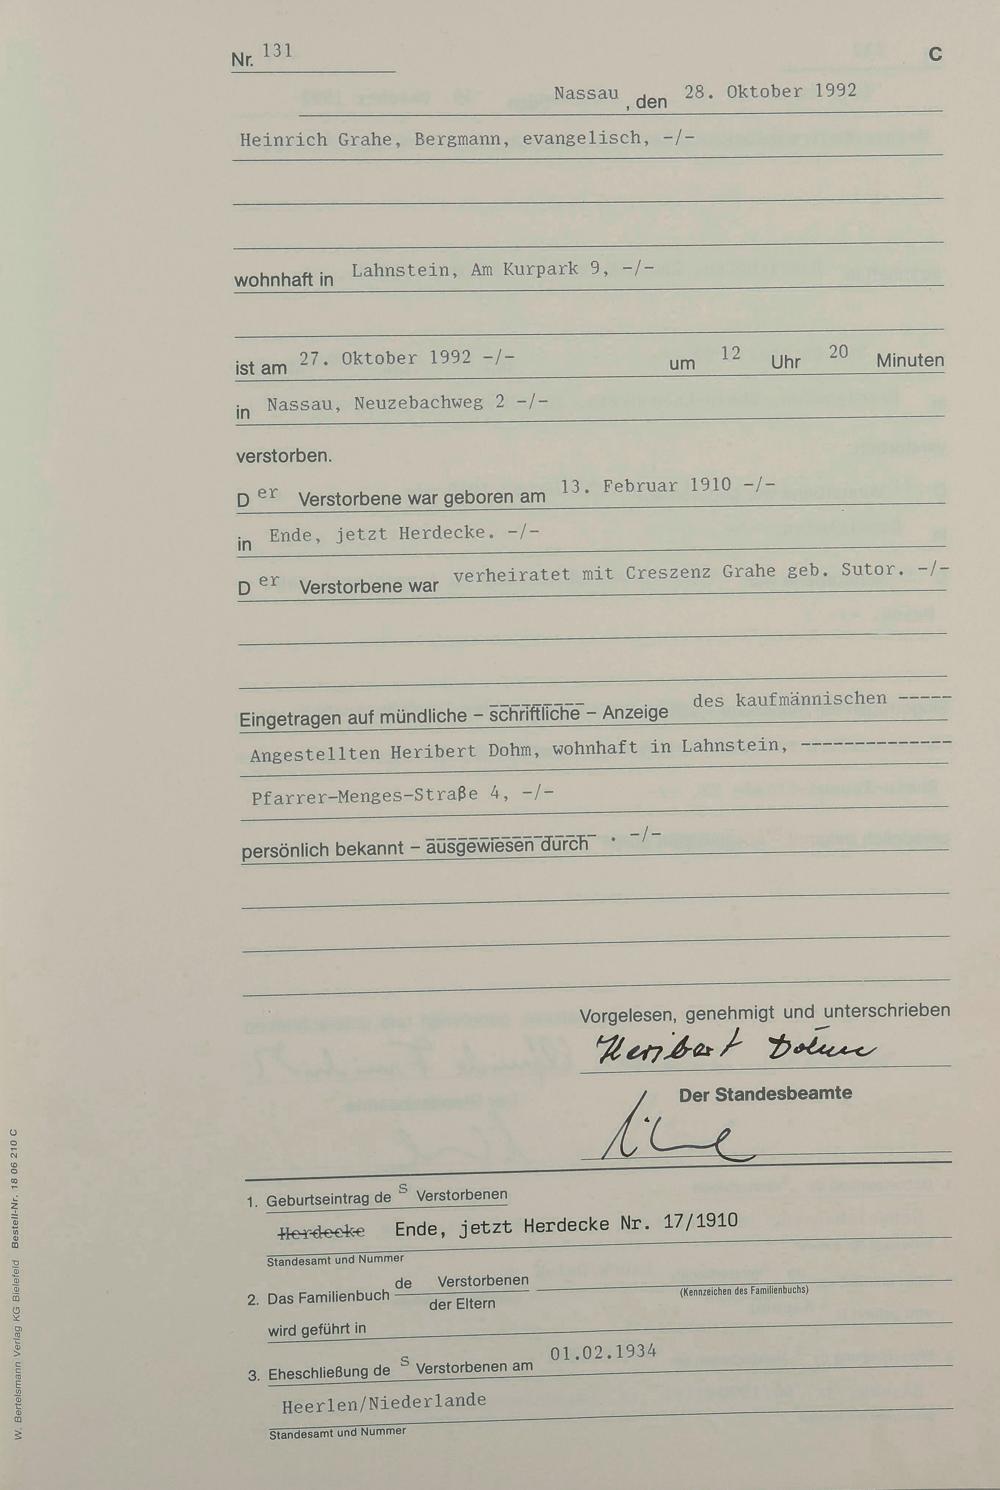 Nr. 131
C
Nassau, den 28. Oktober 1992
Heinrich Grahe, Bergmann, evangelisch, -/-
wohnhaft in Lahnstein, Am Kurpark 9, -/-
ist am 27. Oktober 1992 -/- um 12 Uhr 20 Minuten
in Nassau, Neuzebachweg 2 -/-
verstorben.
Der Verstorbene war geboren am 13. Februar 1910 -/-
in Ende, jetzt Herdecke. -/-
Der Verstorbene war verheiratet mit Creszenz Grahe geb. Sutor. -/-
Eingetragen auf mündliche – schriftliche – Anzeige des kaufmännischen -----
Angestellten Heribert Dohm, wohnhaft in Lahnstein, --------------
Pfarrer-Menges-Straße 4, -/-
persönlich bekannt – ausgewiesen durch . -/-
Vorgelesen, genehmigt und unterschrieben
Heribert Dohm
Der Standesbeamte
1. Geburtseintrag des Verstorbenen
Herdecke Ende, jetzt Herdecke Nr. 17/1910
Standesamt und Nummer
2. Das Familienbuch de Verstorbenen
der Eltern
(Kennzeichen des Familienbuchs)
wird geführt in
3. Eheschließung des Verstorbenen am 01.02.1934
Heerlen/Niederlande
Standesamt und Nummer
W. Bertelsmann Verlag KG Bielefeld Bestell-Nr. 18 06 210 C